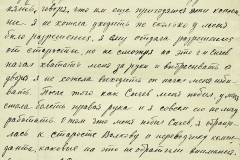 говоря, что им ещё пригодятся эти
я не хотела уходить не сколько у меня
было разрешения. я ему отдала разрешение
от старосты, но не смотря на это г-н Снев
начал хватать меня за руки и вытаскивать со
двора, я не хотела выходить он начал меня изби-
вать. После того как Снев меня избил, у меня
стала болеть правая рука и я совсем не могу
работать. О том что меня избил Снев, я обраща-
лась к старосте Волкову и переводчику комен-
данта, каковые на это не обратили внимания.